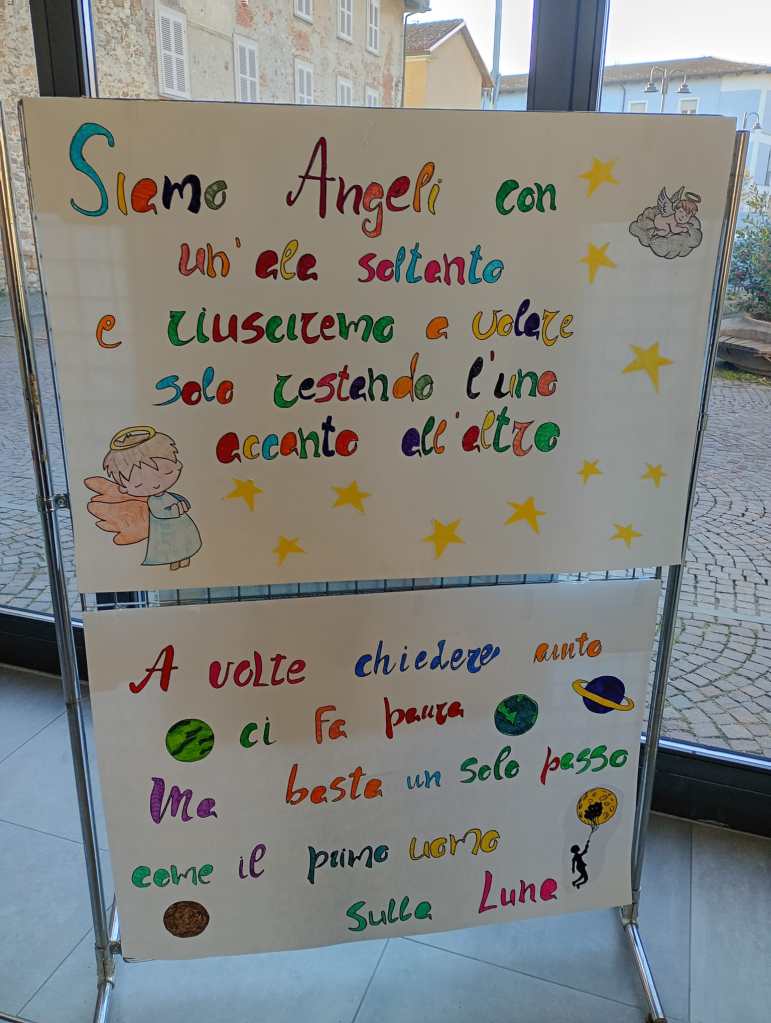 Siamo Angeli con
un'ala soltanto
e riusciremo a volare
solo restando l'uno
accanto all'altro
A volte chiedere aiuto
ci fa paura
Ma basta un solo passo
come il primo uomo
sulla Luna